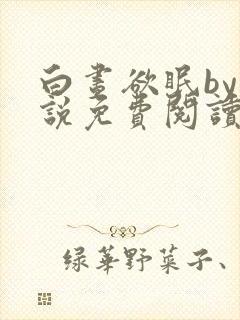 白晝欲眠by
說免費閱讀
緑華野菜子、